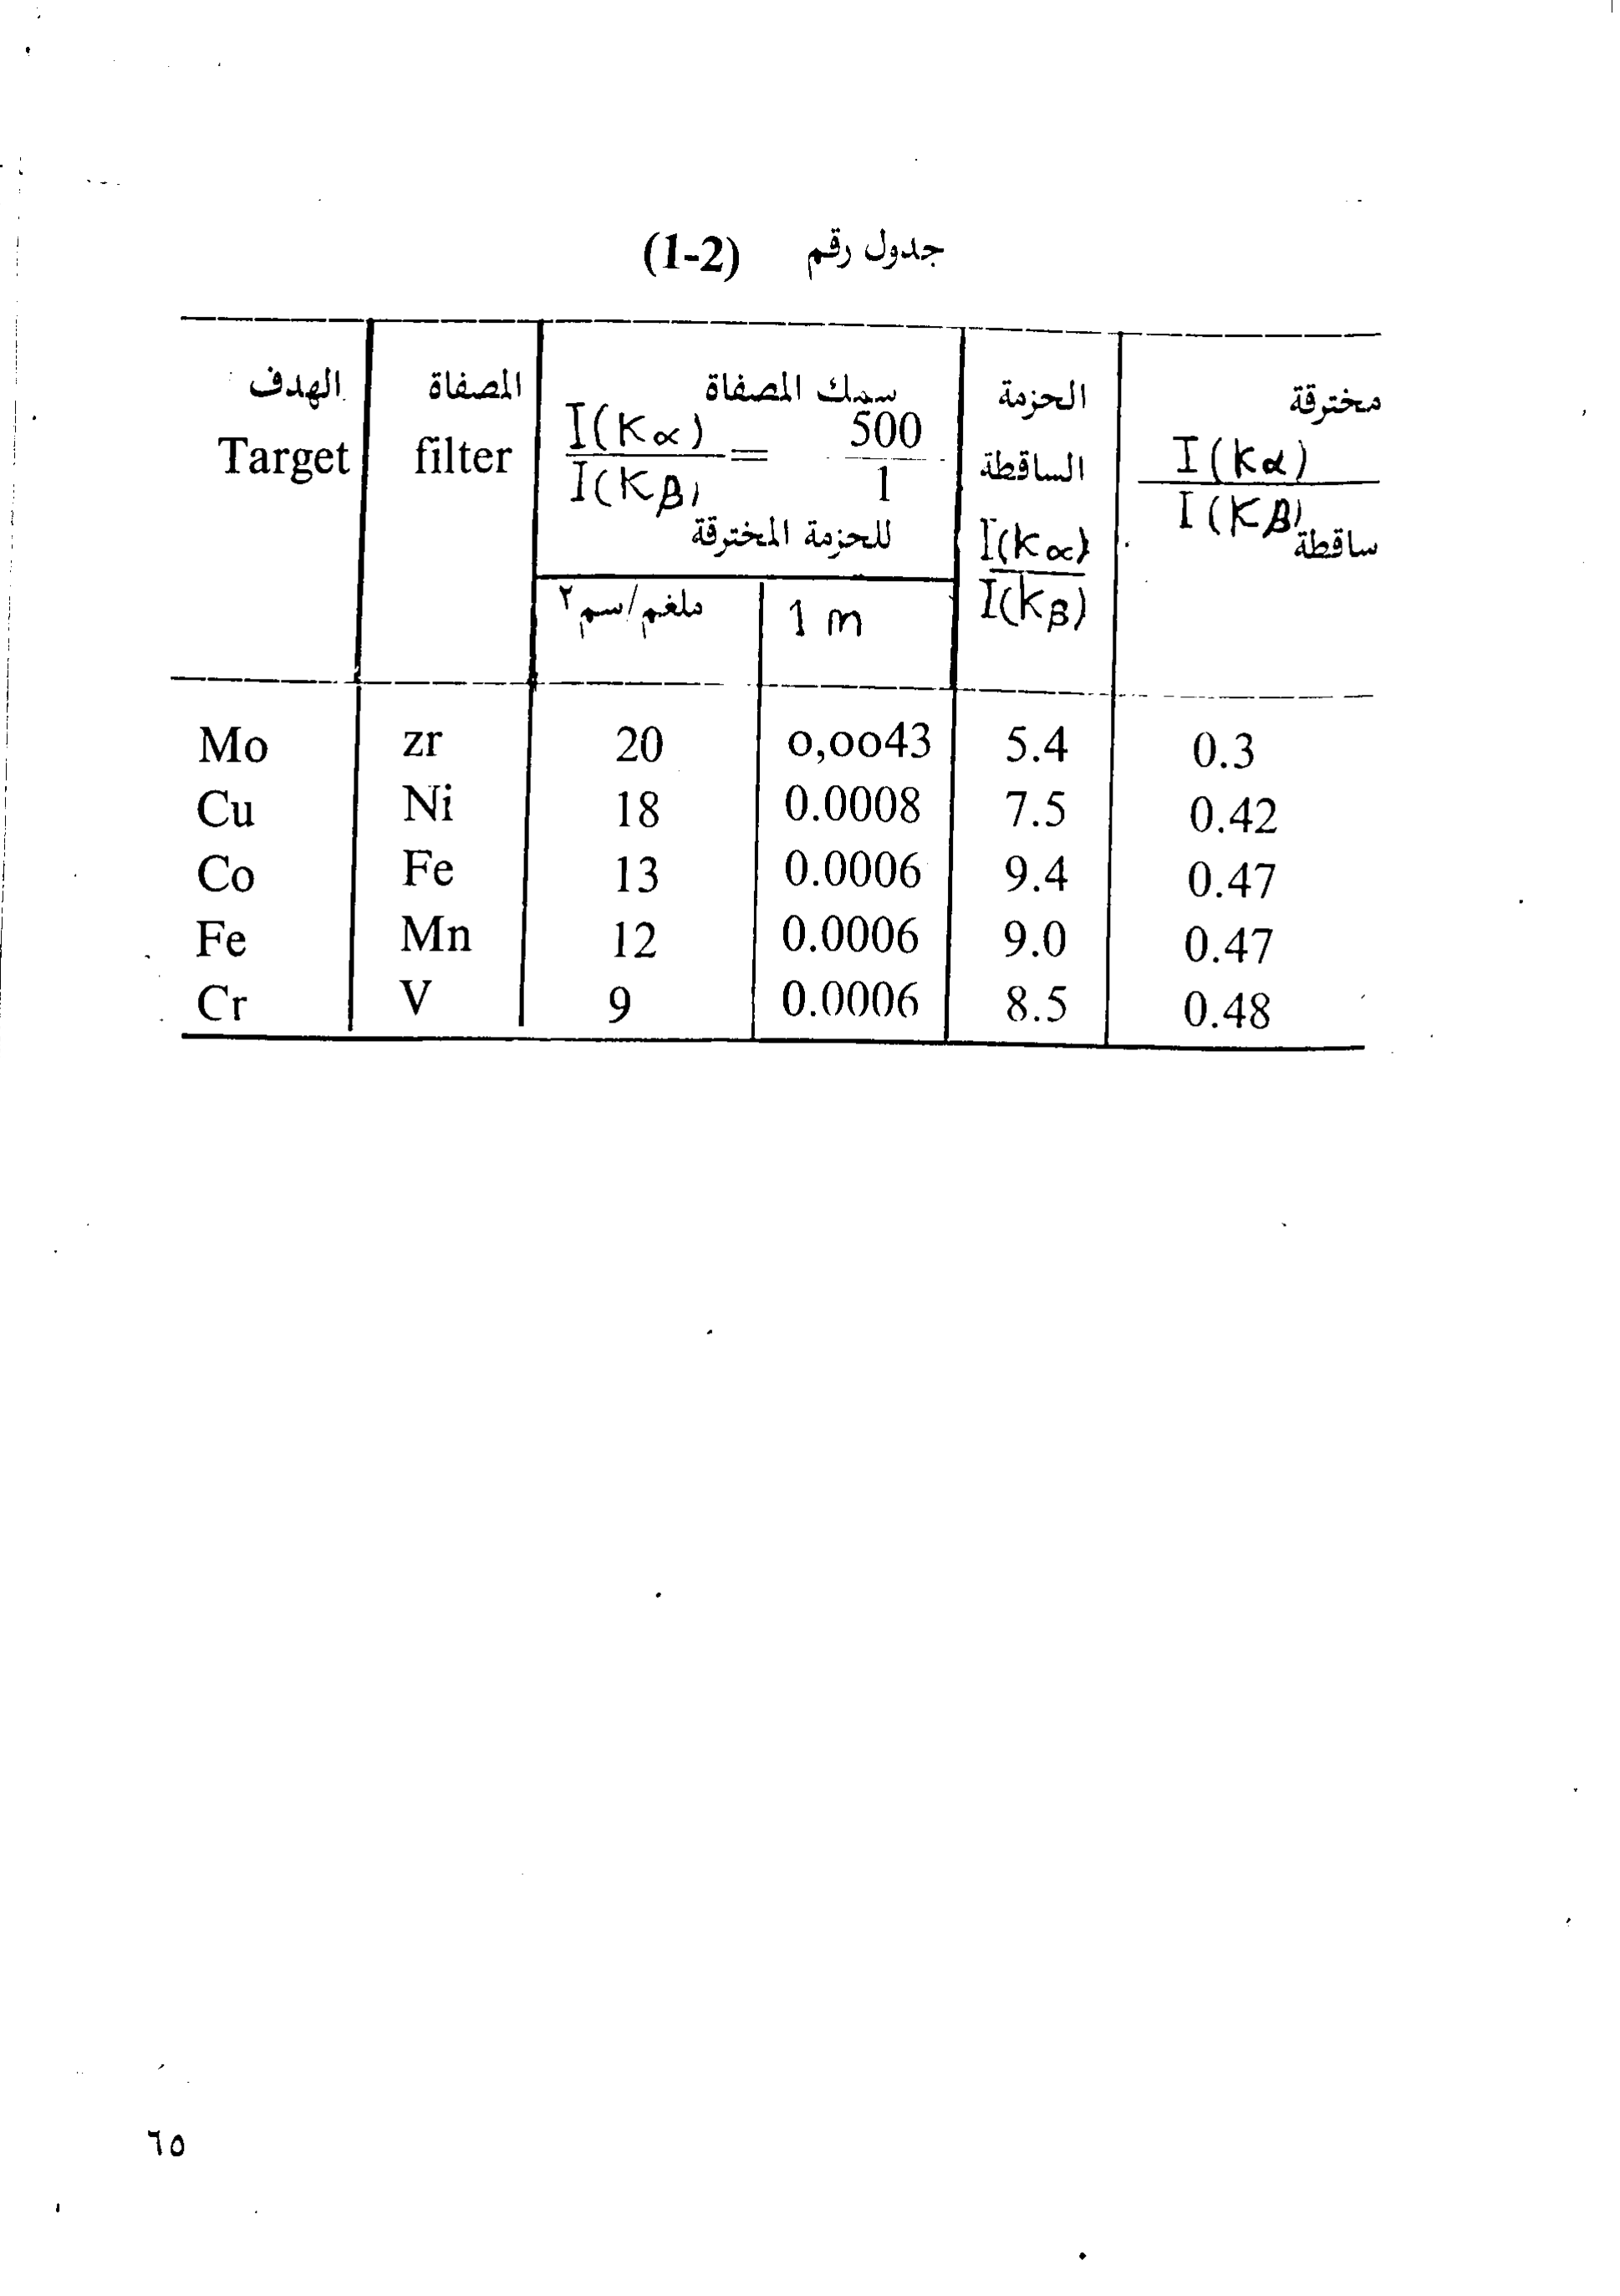 جدول رقم (1-2)
الهدف
Target
المصفاة
filter
سمك المصفاة
I(Kα) / I(Kβ) = 500 / 1
للحزمة المخترقة
ملغم/سم٢
1 m
الحزمة
الساقطة
I(kα) / I(kβ)
مخترقة
I(kα) / I(Kβ)
ساقطة
Mo zr 20 0,0043 5.4 0.3
Cu Ni 18 0.0008 7.5 0.42
Co Fe 13 0.0006 9.4 0.47
Fe Mn 12 0.0006 9.0 0.47
Cr V 9 0.0006 8.5 0.48
٦٥